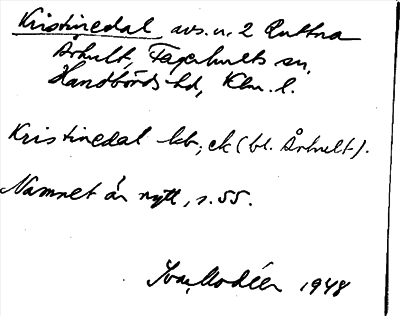 Kristinedal avs. u. 2 Ruttna
Århult, Fagerhults sn,
Handbörds hd, Klm. l.
Kristinedal kb, ek (bl. Århult).
Namnet är nytt, s. 55.
Ivar Modéer 1948